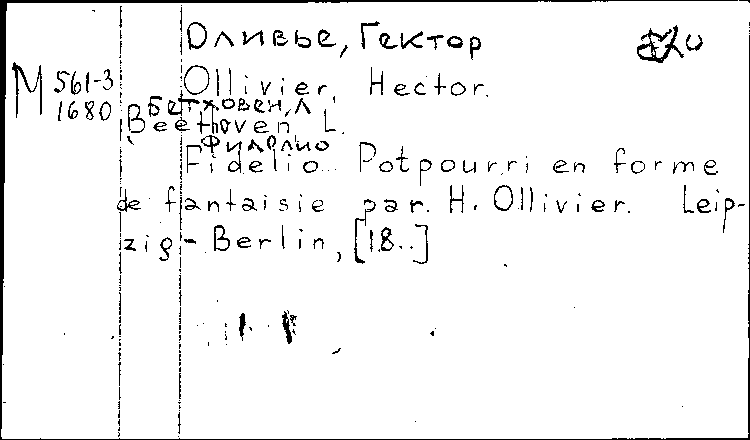 Оливье, Гектор
М 561-3 Ollivier, Hector.
1680 Бетховен, Л
Beethoven L.
Фиделио
Fidelio. Potpourri en forme
de fantaisie par. H. Ollivier. Leip-
zig-Berlin, [18..]